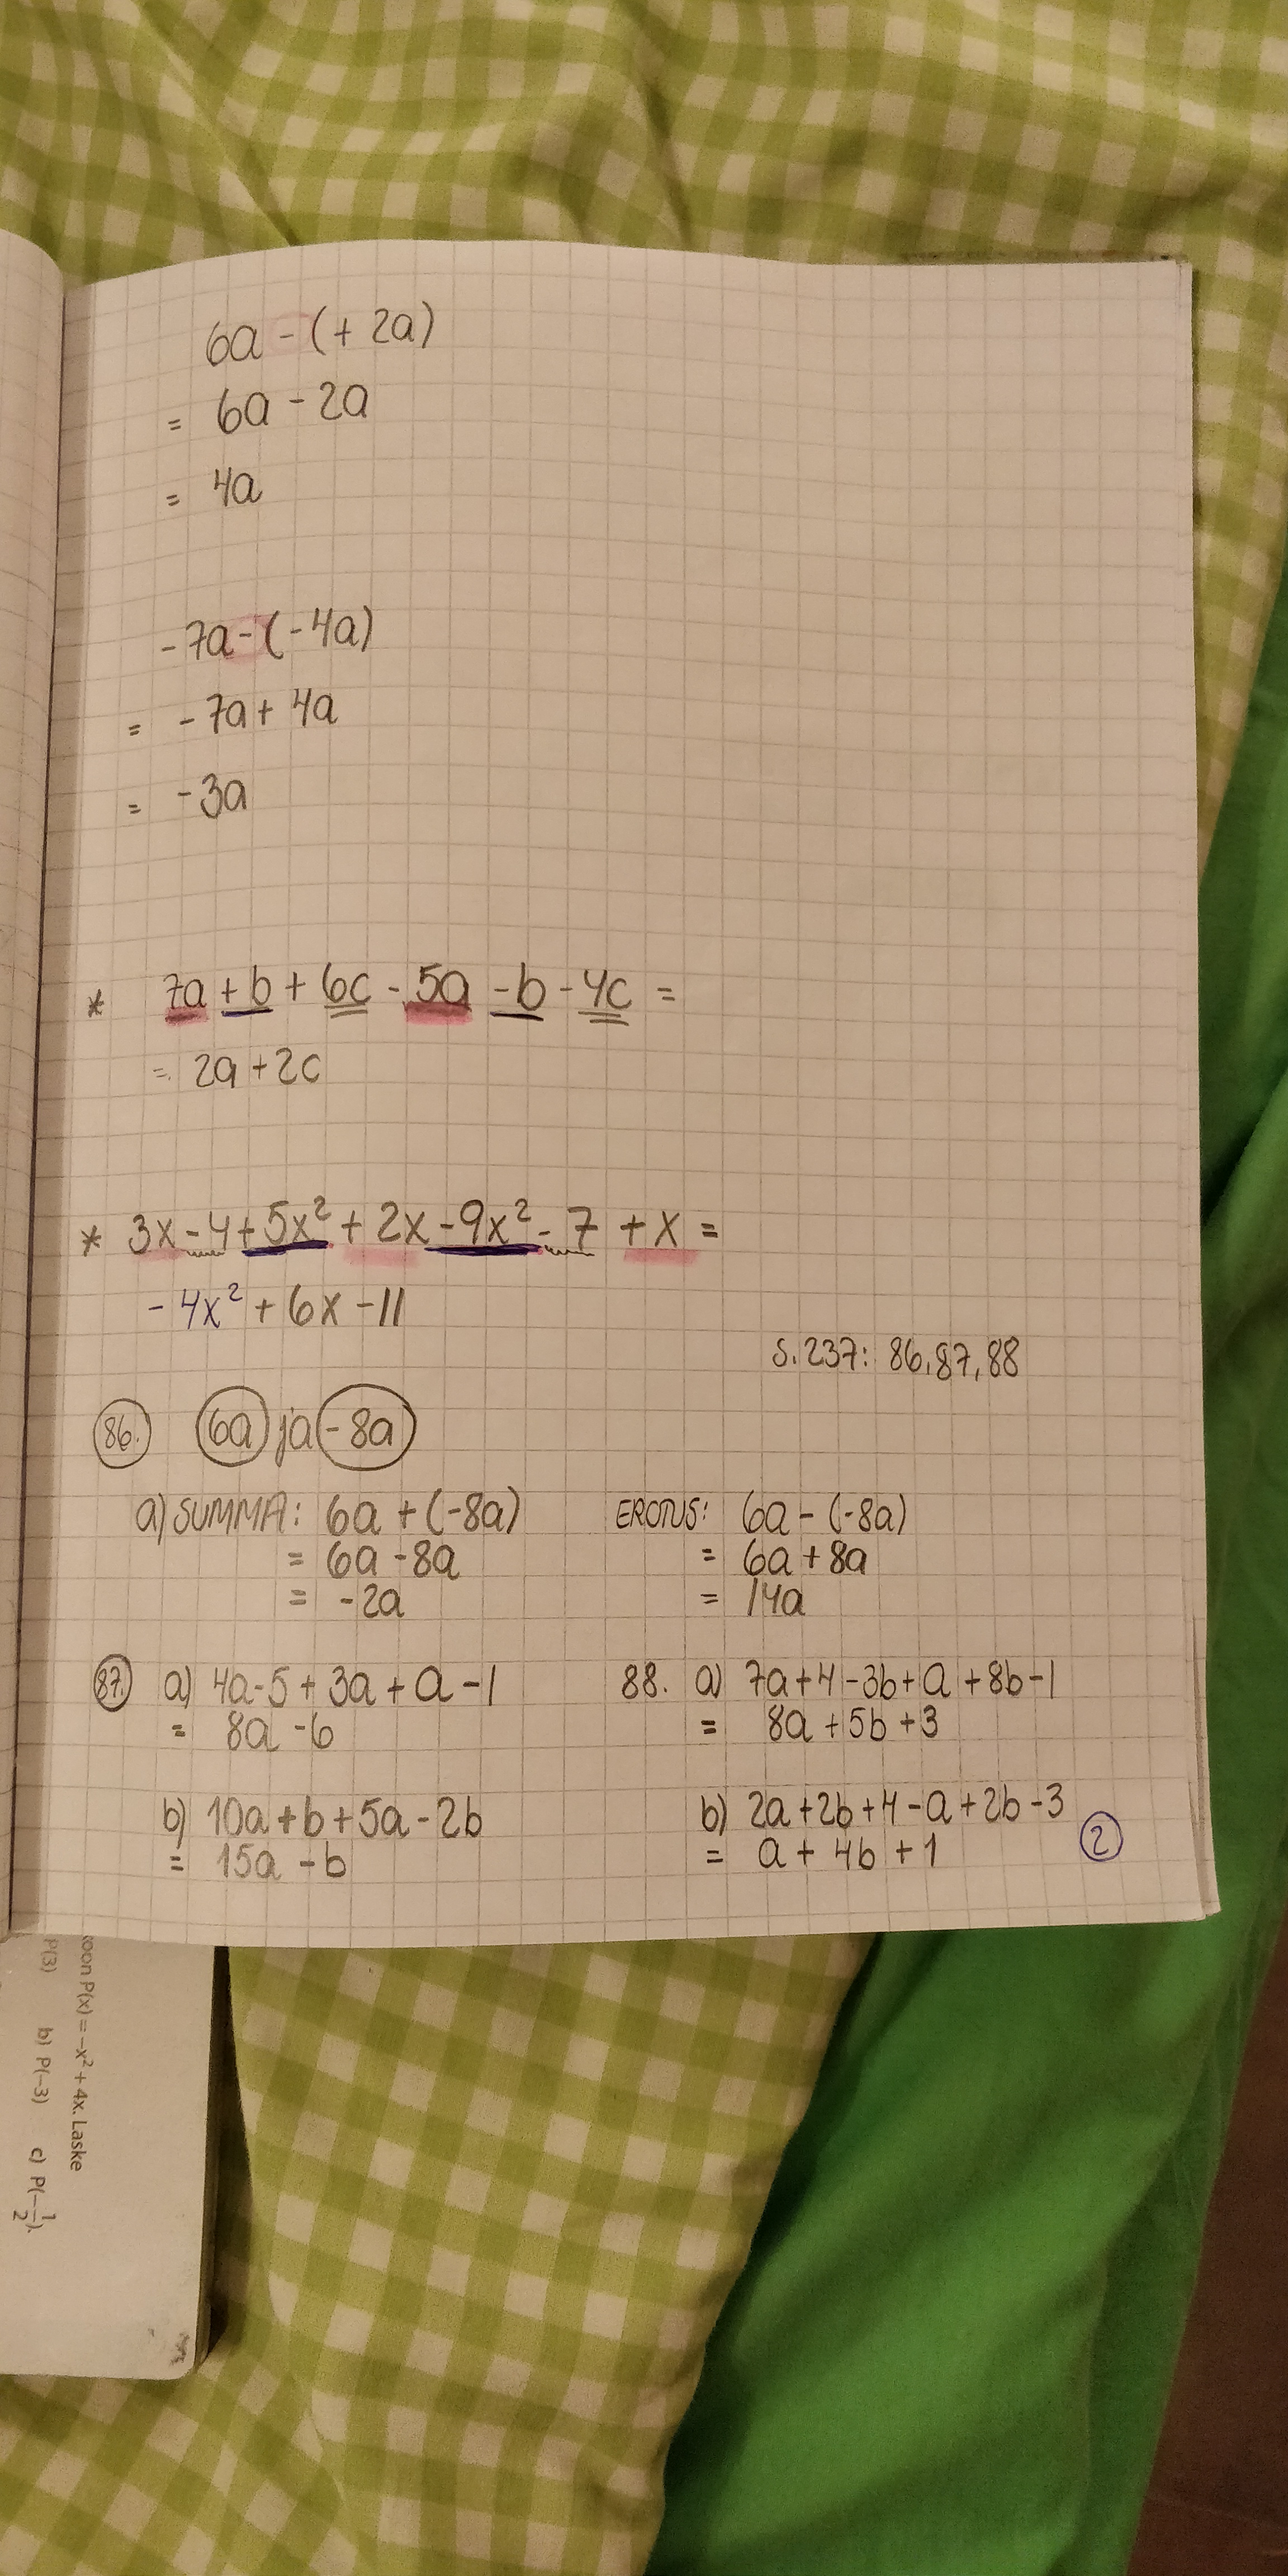 6a - (+ 2a)
= 6a - 2a
= 4a
-7a - (-4a)
= -7a + 4a
= -3a
* 7a + b + 6c - 5a - b - 4c =
= 2a + 2c
* 3x - 4 + 5x² + 2x - 9x² - 7 + x =
- 4x² + 6x - 11
s. 237: 86, 87, 88
86. 6a ja -8a
a) SUMMA: 6a + (-8a)
= 6a - 8a
= -2a
EROTUS: 6a - (-8a)
= 6a + 8a
= 14a
87. a) 4a - 5 + 3a + a - 1
= 8a - 6
b) 10a + b + 5a - 2b
= 15a - b
88. a) 7a + 4 - 3b + a + 8b - 1
= 8a + 5b + 3
b) 2a + 2b + 4 - a + 2b - 3
= a + 4b + 1
2
P(x) = -x² + 4x. Laske
P(3) b) P(-3) c) P(-1/2).